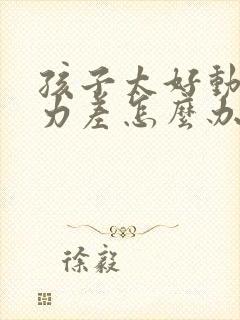 孩子太好動
力差怎麼办
徐毅